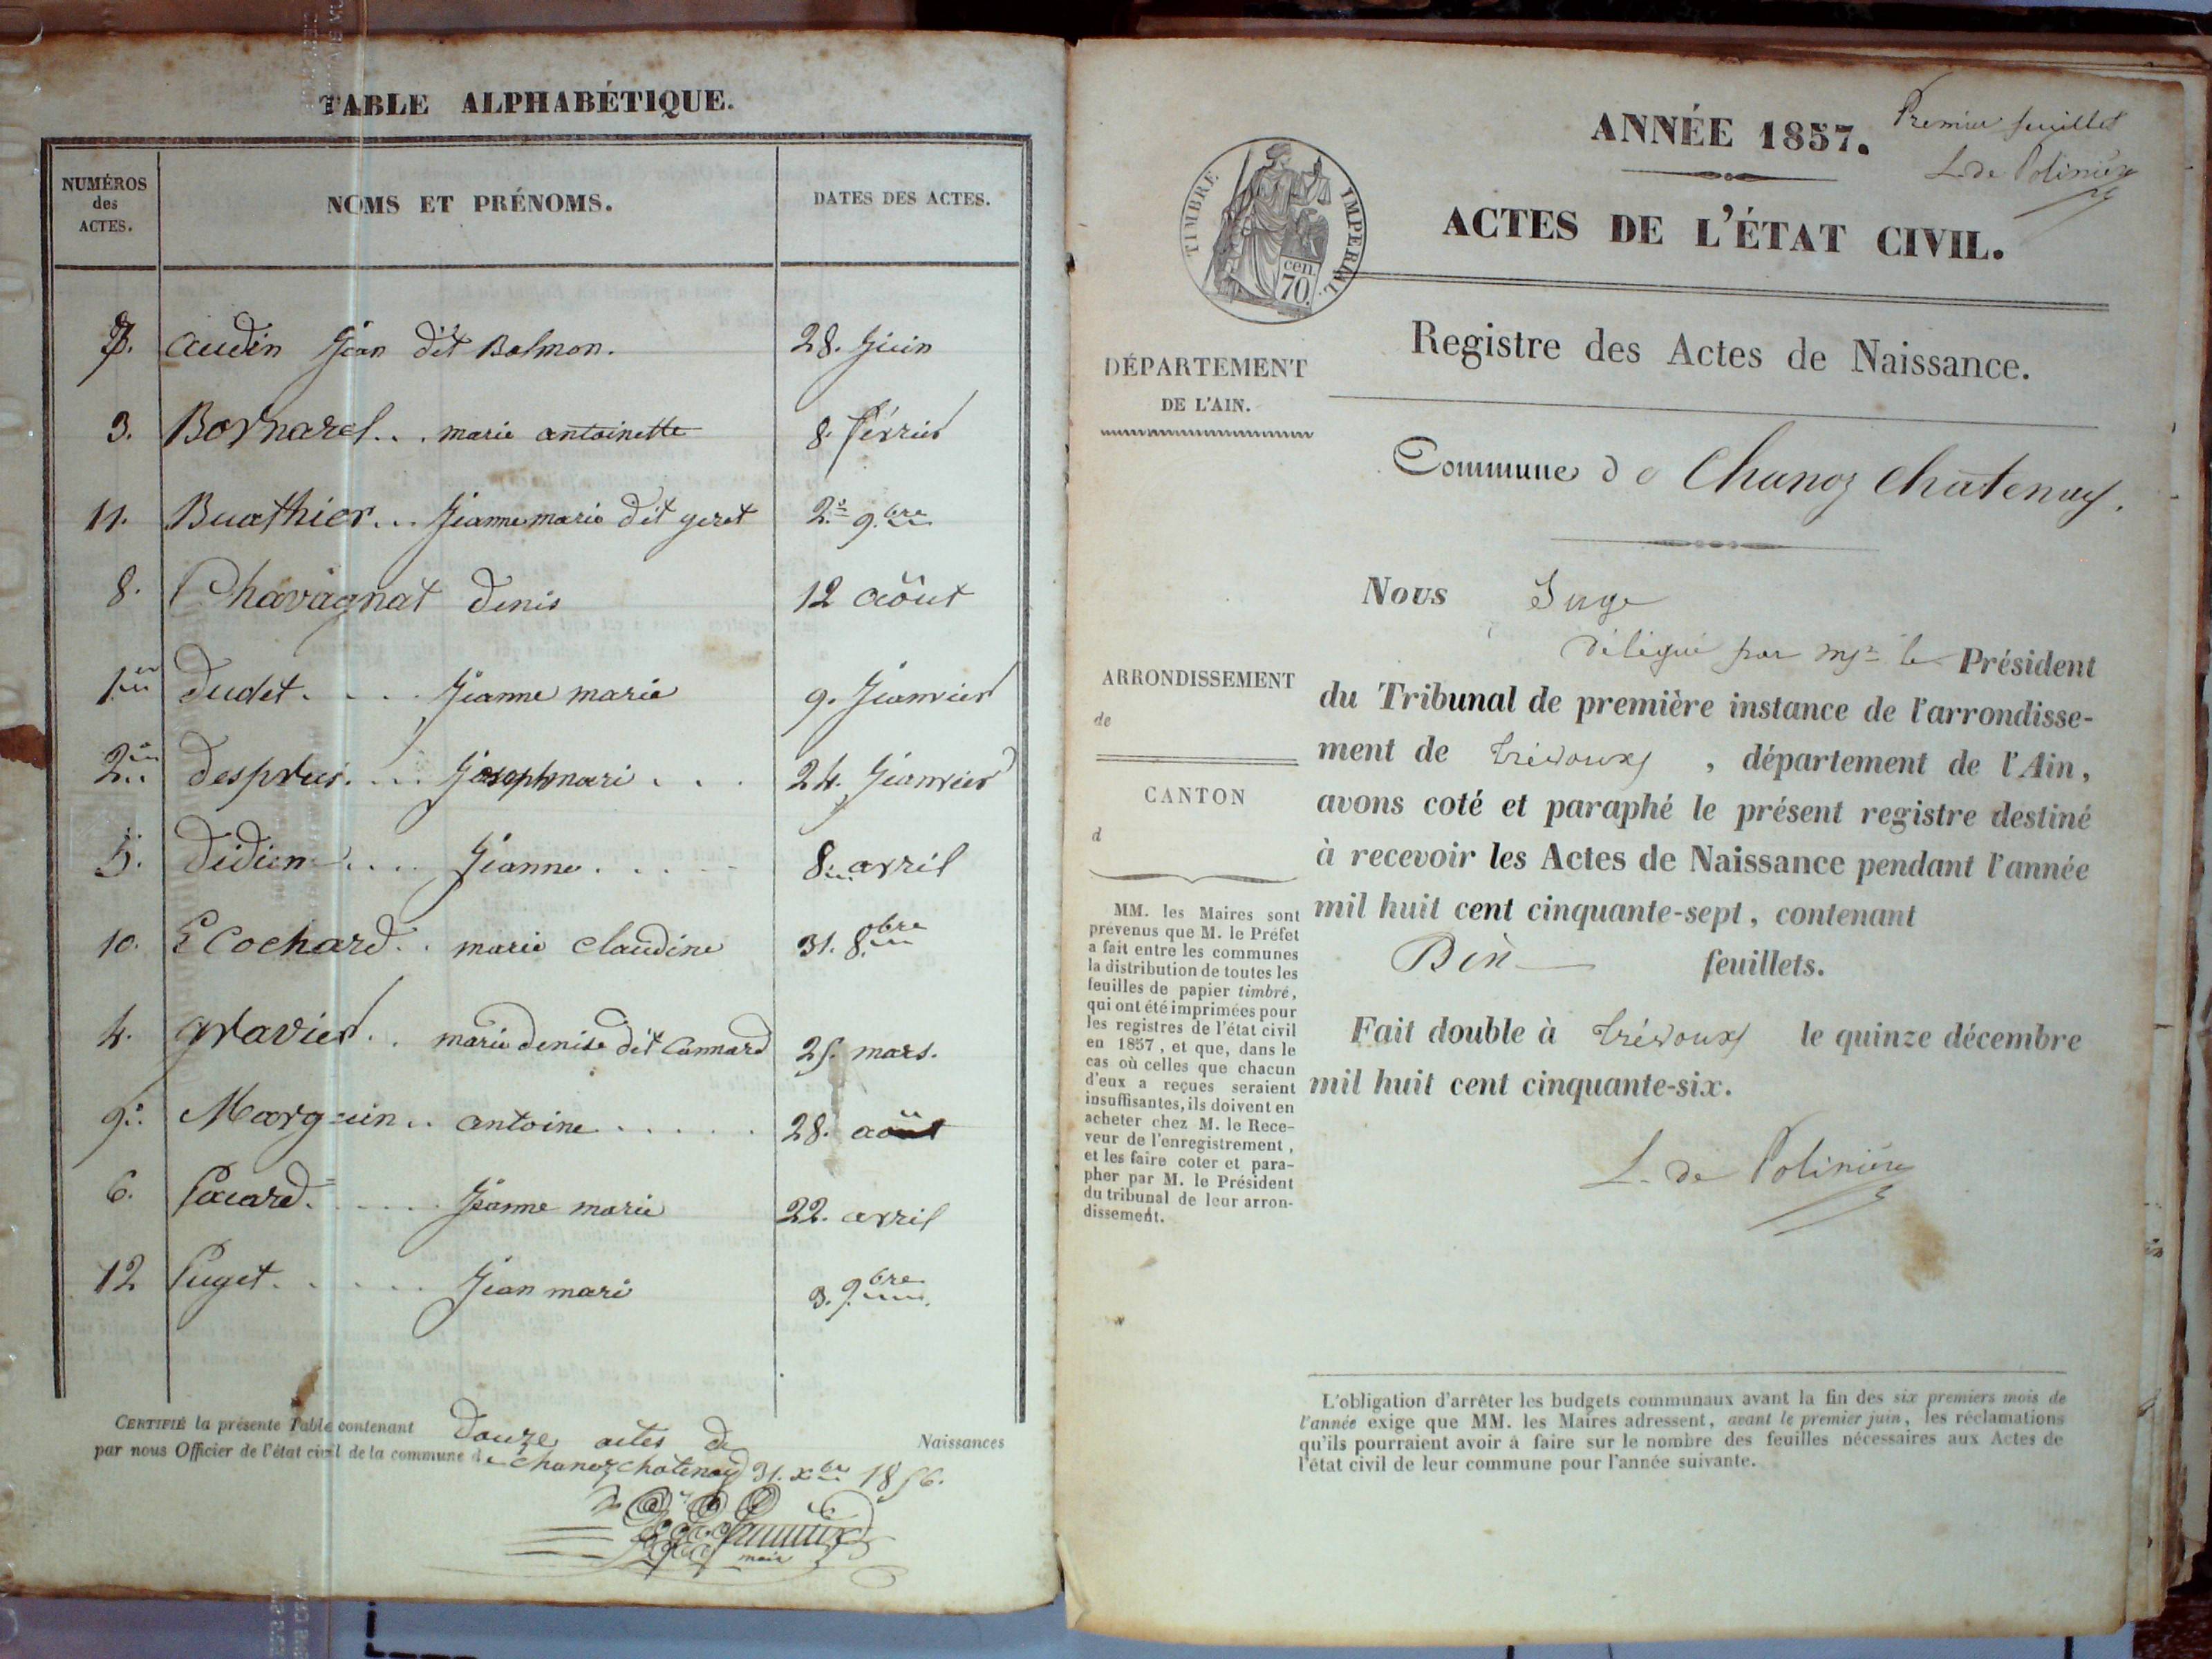 TABLE ALPHABÉTIQUE.
NUMÉROS
des
ACTES.
NOMS ET PRÉNOMS.
DATES DES ACTES.
7. audin Jean dit Balmon. 28. Juin
3. Bornarel... marie antoinette 8. février
11. Buathier... Jeanne marie dit geret 2. 9.bre
8. Chavagnat denis 12 août
1er dudet.... Jeanne marie 9. Janvier
2 Josephmari... 24. Janvier
5. Jeanne..... 8. avril
10. Ecochard.. marie claudine 31. 8.bre
4. gravier.. marie denise dit Cannard 25. mars.
9. Marguin.. antoine...... 28. août
6. Pacard...... Jeanne marie 22. avril
12 Puget...... Jean mari 3. 9.bre
CERTIFIÉ la présente Table contenant douze actes de Naissances
par nous Officier de l'état civil de la commune de chanozchatenay 31. xbre 1856.
maire
Premier feuillet
L. de Polinière
ANNÉE 1857.
ACTES DE L'ÉTAT CIVIL.
TIMBRE IMPERIAL.
cen.
70.
Registre des Actes de Naissance.
DÉPARTEMENT
DE L'AIN.
Commune de Chanoz Chatenay.
ARRONDISSEMENT
de
CANTON
d
MM. les Maires sont
prévenus que M. le Préfet
a fait entre les communes
la distribution de toutes les
feuilles de papier timbré,
qui ont été imprimées pour
les registres de l'état civil
en 1857, et que, dans le
cas où celles que chacun
d'eux a reçues seraient
insuffisantes, ils doivent en
acheter chez M. le Rece-
veur de l'enregistrement,
et les faire coter et para-
pher par M. le Président
du tribunal de leur arron-
dissement.
Nous Juge
délégué par Mr le Président
du Tribunal de première instance de l'arrondisse-
ment de Trévoux, département de l'Ain,
avons coté et paraphé le présent registre destiné
à recevoir les Actes de Naissance pendant l'année
mil huit cent cinquante-sept, contenant
feuillets.
Fait double à Trévoux le quinze décembre
mil huit cent cinquante-six.
L. de Polinière
L'obligation d'arrêter les budgets communaux avant la fin des six premiers mois de
l'année exige que MM. les Maires adressent, avant le premier juin, les réclamations
qu'ils pourraient avoir à faire sur le nombre des feuilles nécessaires aux Actes de
l'état civil de leur commune pour l'année suivante.